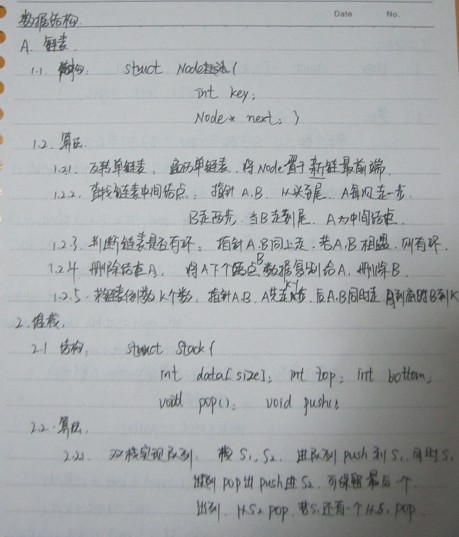 数据结构 Date No.
A. 链表
1.1. 结构: struct Node {
int key;
Node* next; }
1.2. 算法
1.2.1. 反转单链表, 遍历单链表, 将Node置于新链最前端.
1.2.2. 查找链表中间结点: 指针A.B. 从头, A每次走一步,
B走两步, 当B走到尾, A为中间结点.
1.2.3. 判断链表是否有环: 指针A.B同上走, 若A.B相遇, 则有环.
1.2.4. 删除结点A, 将A下个结点B数据复制给A, 删除B.
1.2.5. 求链表倒数K个数, 指针A.B, A先走K-1步, 后A.B同时走
2. 堆栈
2.1 结构: struct Stack {
int data[size]; int top; int bottom;
void pop(); void push();
2.2. 算法.
2.2.1. 双栈实现队列. 栈 S1, S2. 进队列 push 到 S1.
pop出 push进 S2, 最后一个
出列, S2 pop. 若S1还有一个 S1 pop